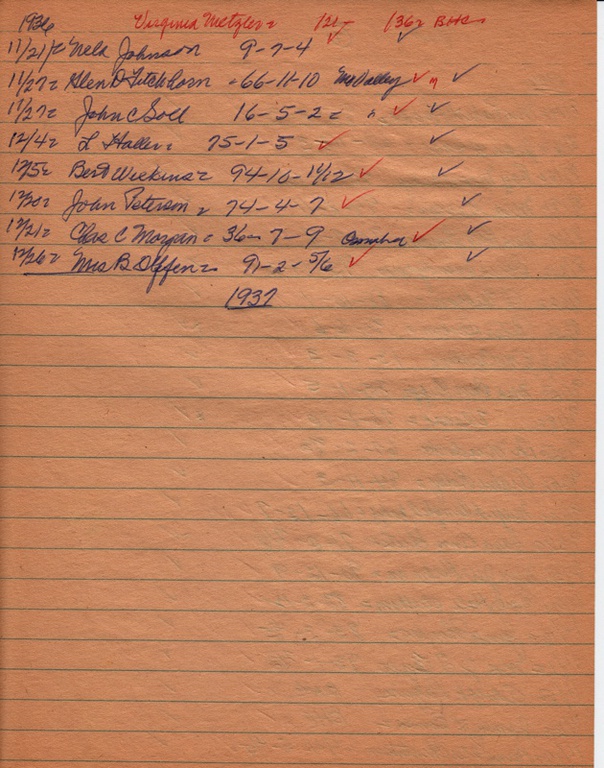 1936 Virginia Metzler = 121- 136 = BHS
11/21/ Nels Johnson 9-7-4
11/27 = Glen D Fitchhorn - 66-11-10 Mo Valley "
11/27 = John C Soll 16-5-2 = "
12/4 = L Haller = 75-1-5
12/5 = Bert Weekins = 94-10-11/12
12/20 = John Peterson = 74-4-7
12/21 = Chas C Morgan = 36-7-9 Omaha
12/26 = Mrs B Offen = 91-2-5/6
1937